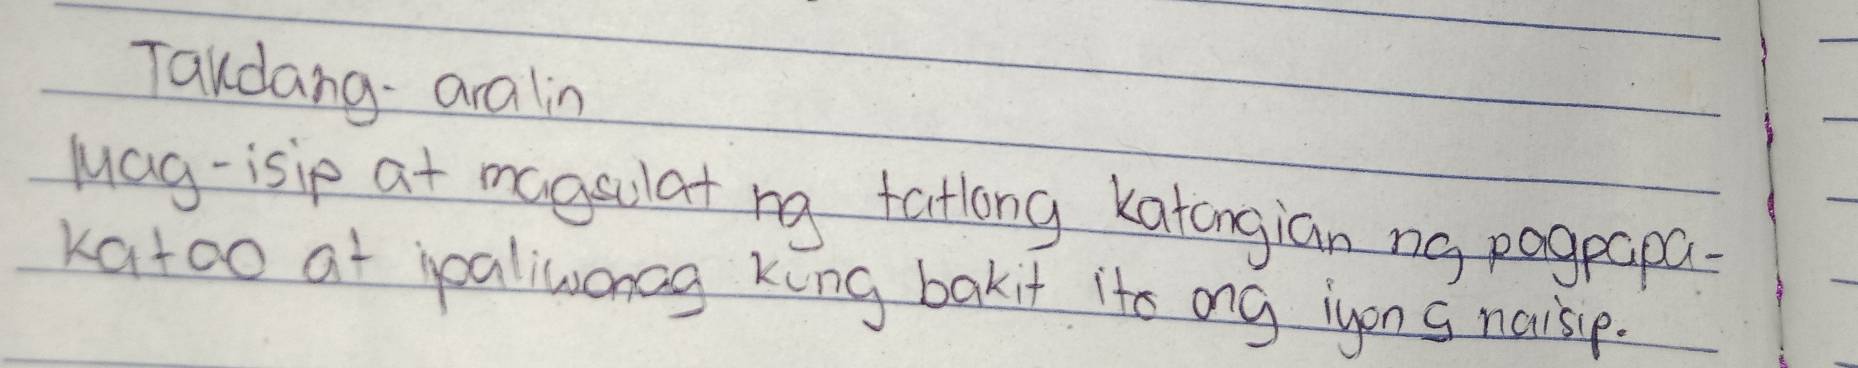 Takdang-aralin
Mag-isip at magsulat ng tatlong katangian ng pagpapa-
katao at ipaliwanag kung bakit ito ang iyong naisip.